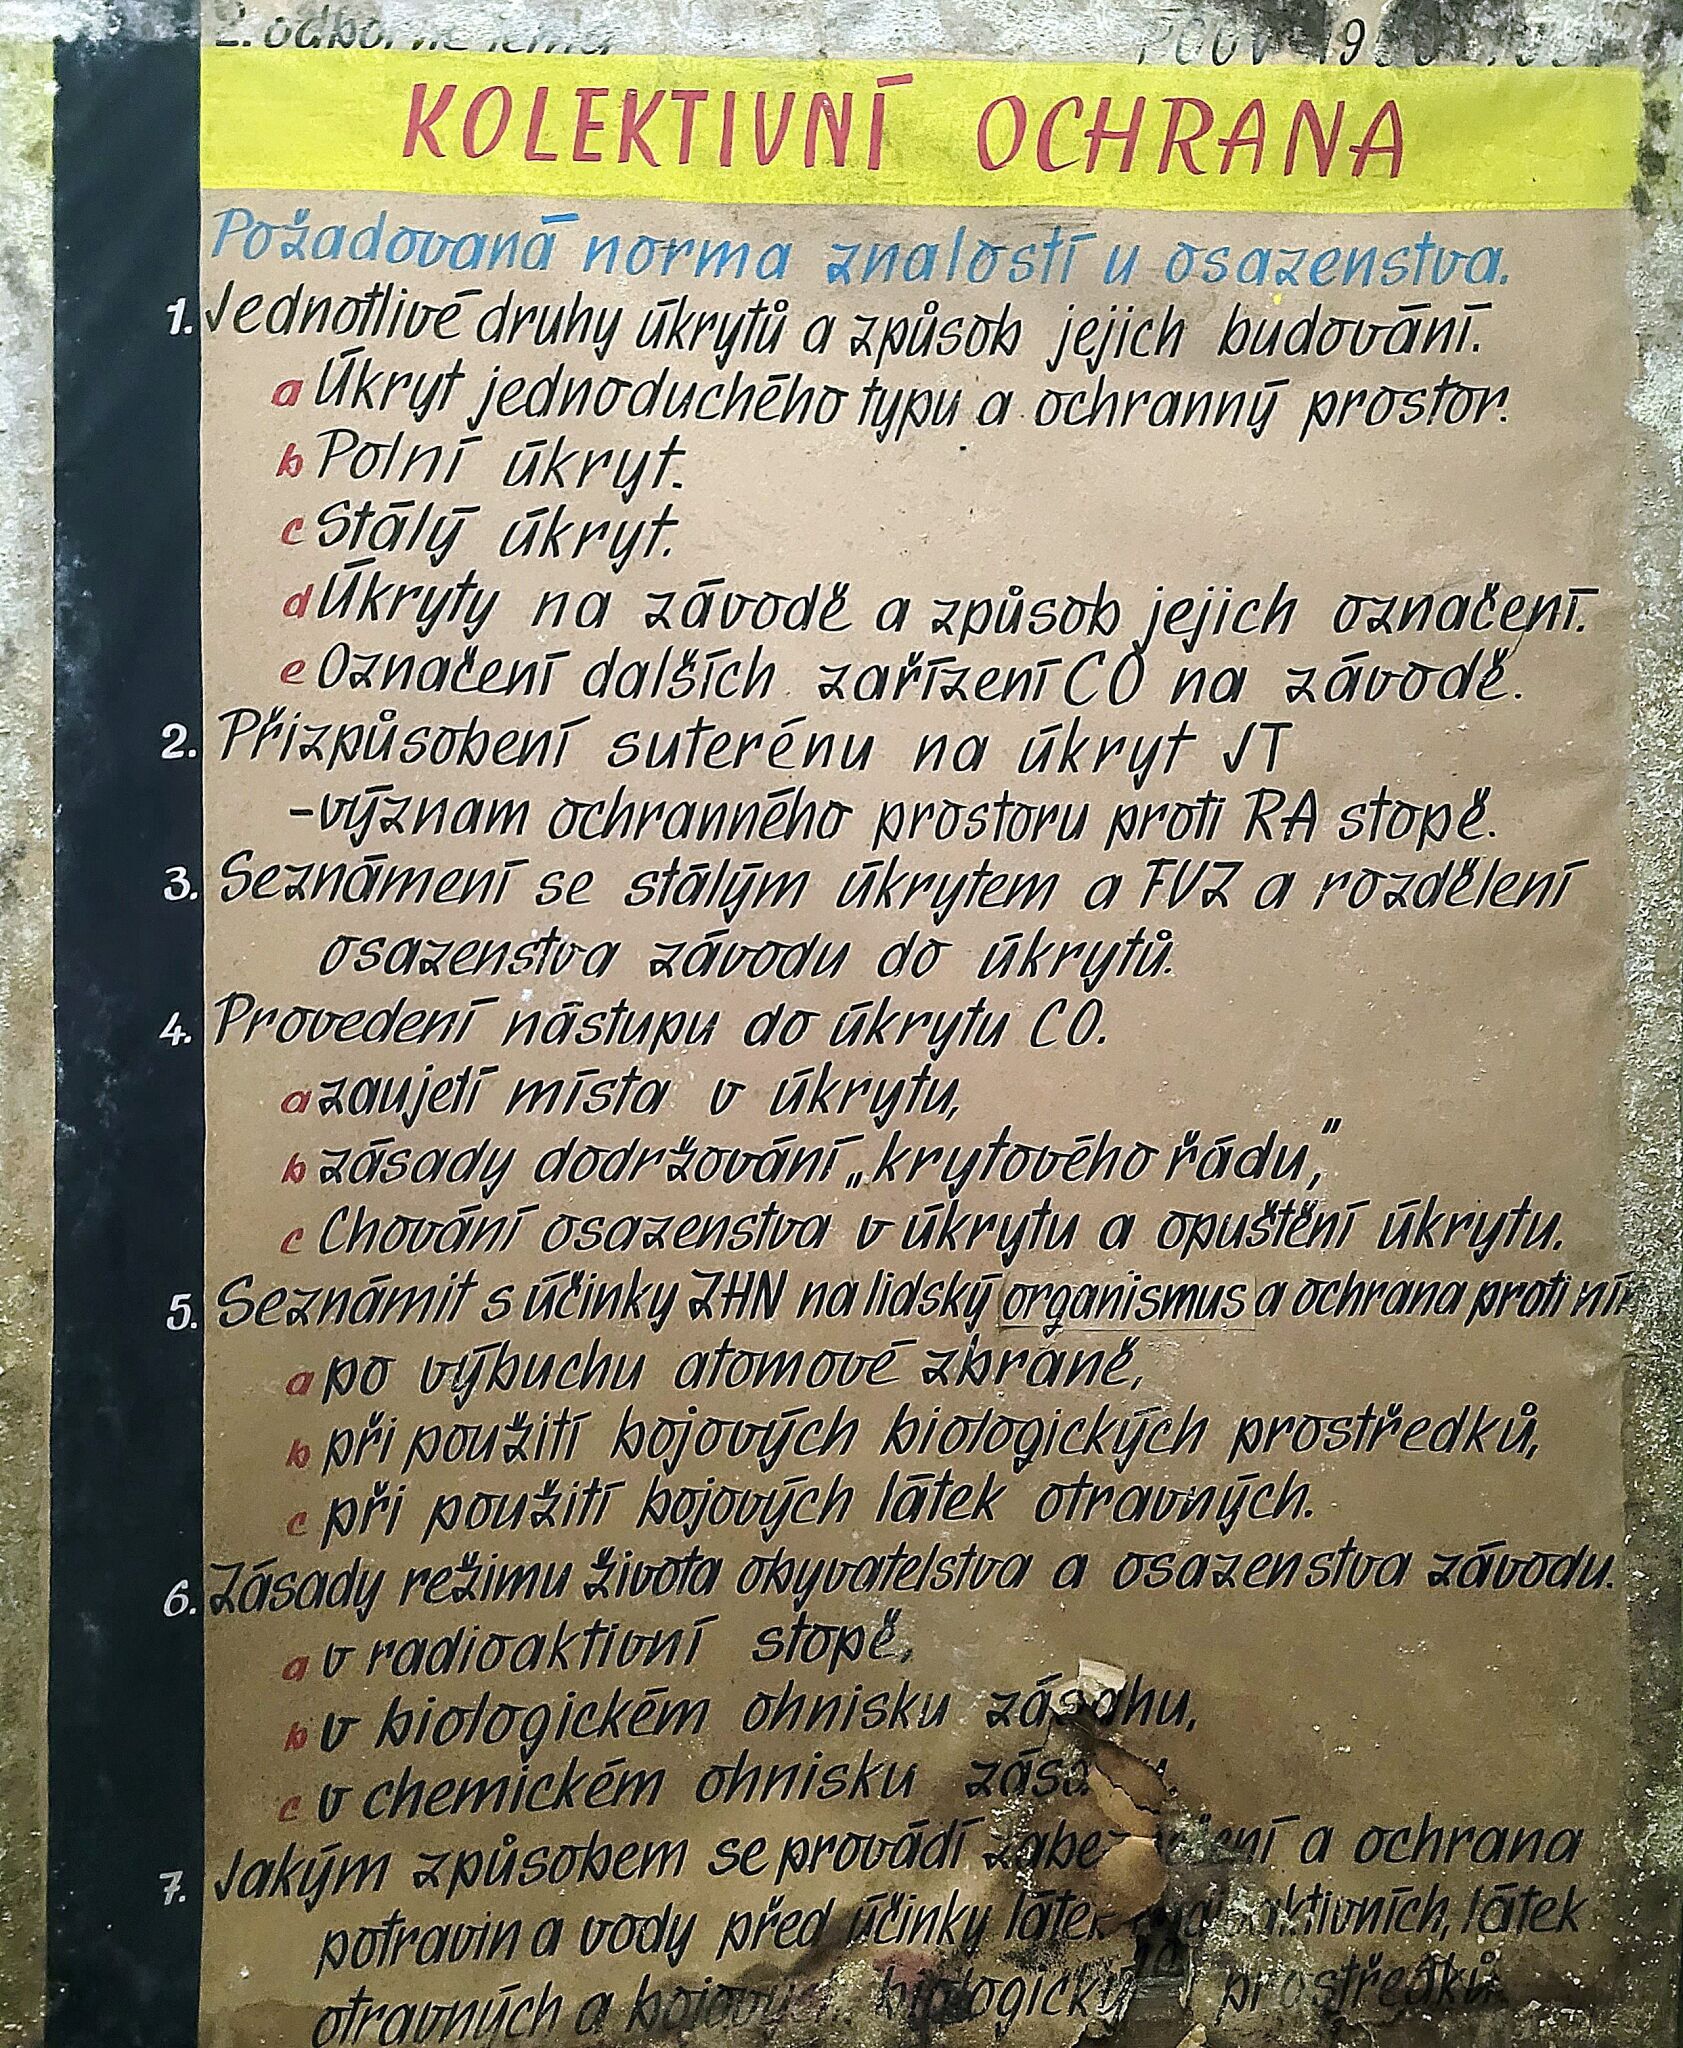 2. odborné téma
KOLEKTIVNÍ OCHRANA
Požadovaná norma znalostí u osazenstva.
1. Jednotlivé druhy úkrytů a způsob jejich budování.
a Úkryt jednoduchého typu a ochranný prostor.
b Polní úkryt.
c Stálý úkryt.
d Úkryty na závodě a způsob jejich označení.
e Označení dalších zařízení CO na závodě.
2. Přizpůsobení suterénu na úkryt JT
-význam ochranného prostoru proti RA stopě.
3. Seznámení se stálým úkrytem a FVZ a rozdělení
osazenstva závodu do úkrytů.
4. Provedení nástupu do úkrytu CO.
a zaujetí místa v úkrytu,
b zásady dodržování „krytového řádu,"
c Chování osazenstva v úkrytu a opuštění úkrytu.
5. Seznámit s účinky ZHN na lidský organismus a ochrana proti
a po výbuchu atomové zbraně,
b při použití bojových biologických prostředků,
c při použití bojových látek otravných.
6. Zásady režimu života obyvatelstva a osazenstva závodu.
a v radioaktivní stopě,
b v biologickém ohnisku zásahu,
c v chemickém ohnisku
7. Jakým způsobem se provádí a ochrana
potravin a vody před účinky látek látek
otravných a biologických prostředků.